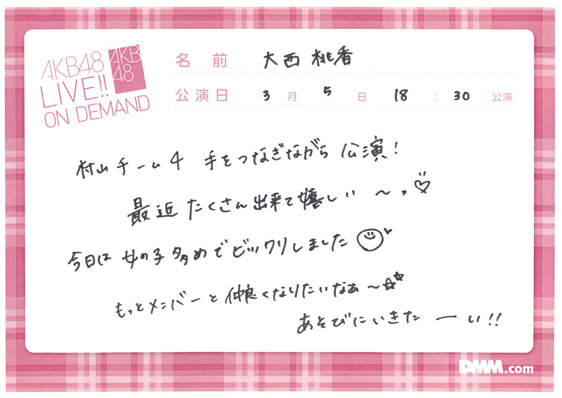 AKB48
LIVE!!
ON DEMAND
AKB
48
名前 大西桃香
公演日 3月5日 18:30 公演
村山チーム4 手をつなぎながら 公演!
最近たくさん出来て嬉しい〜っ♡
今日は女の子多めでビックリしました
もっとメンバーと仲良くなりたいなぁ〜☆★
あそびにいきたーい!!
DMM.com